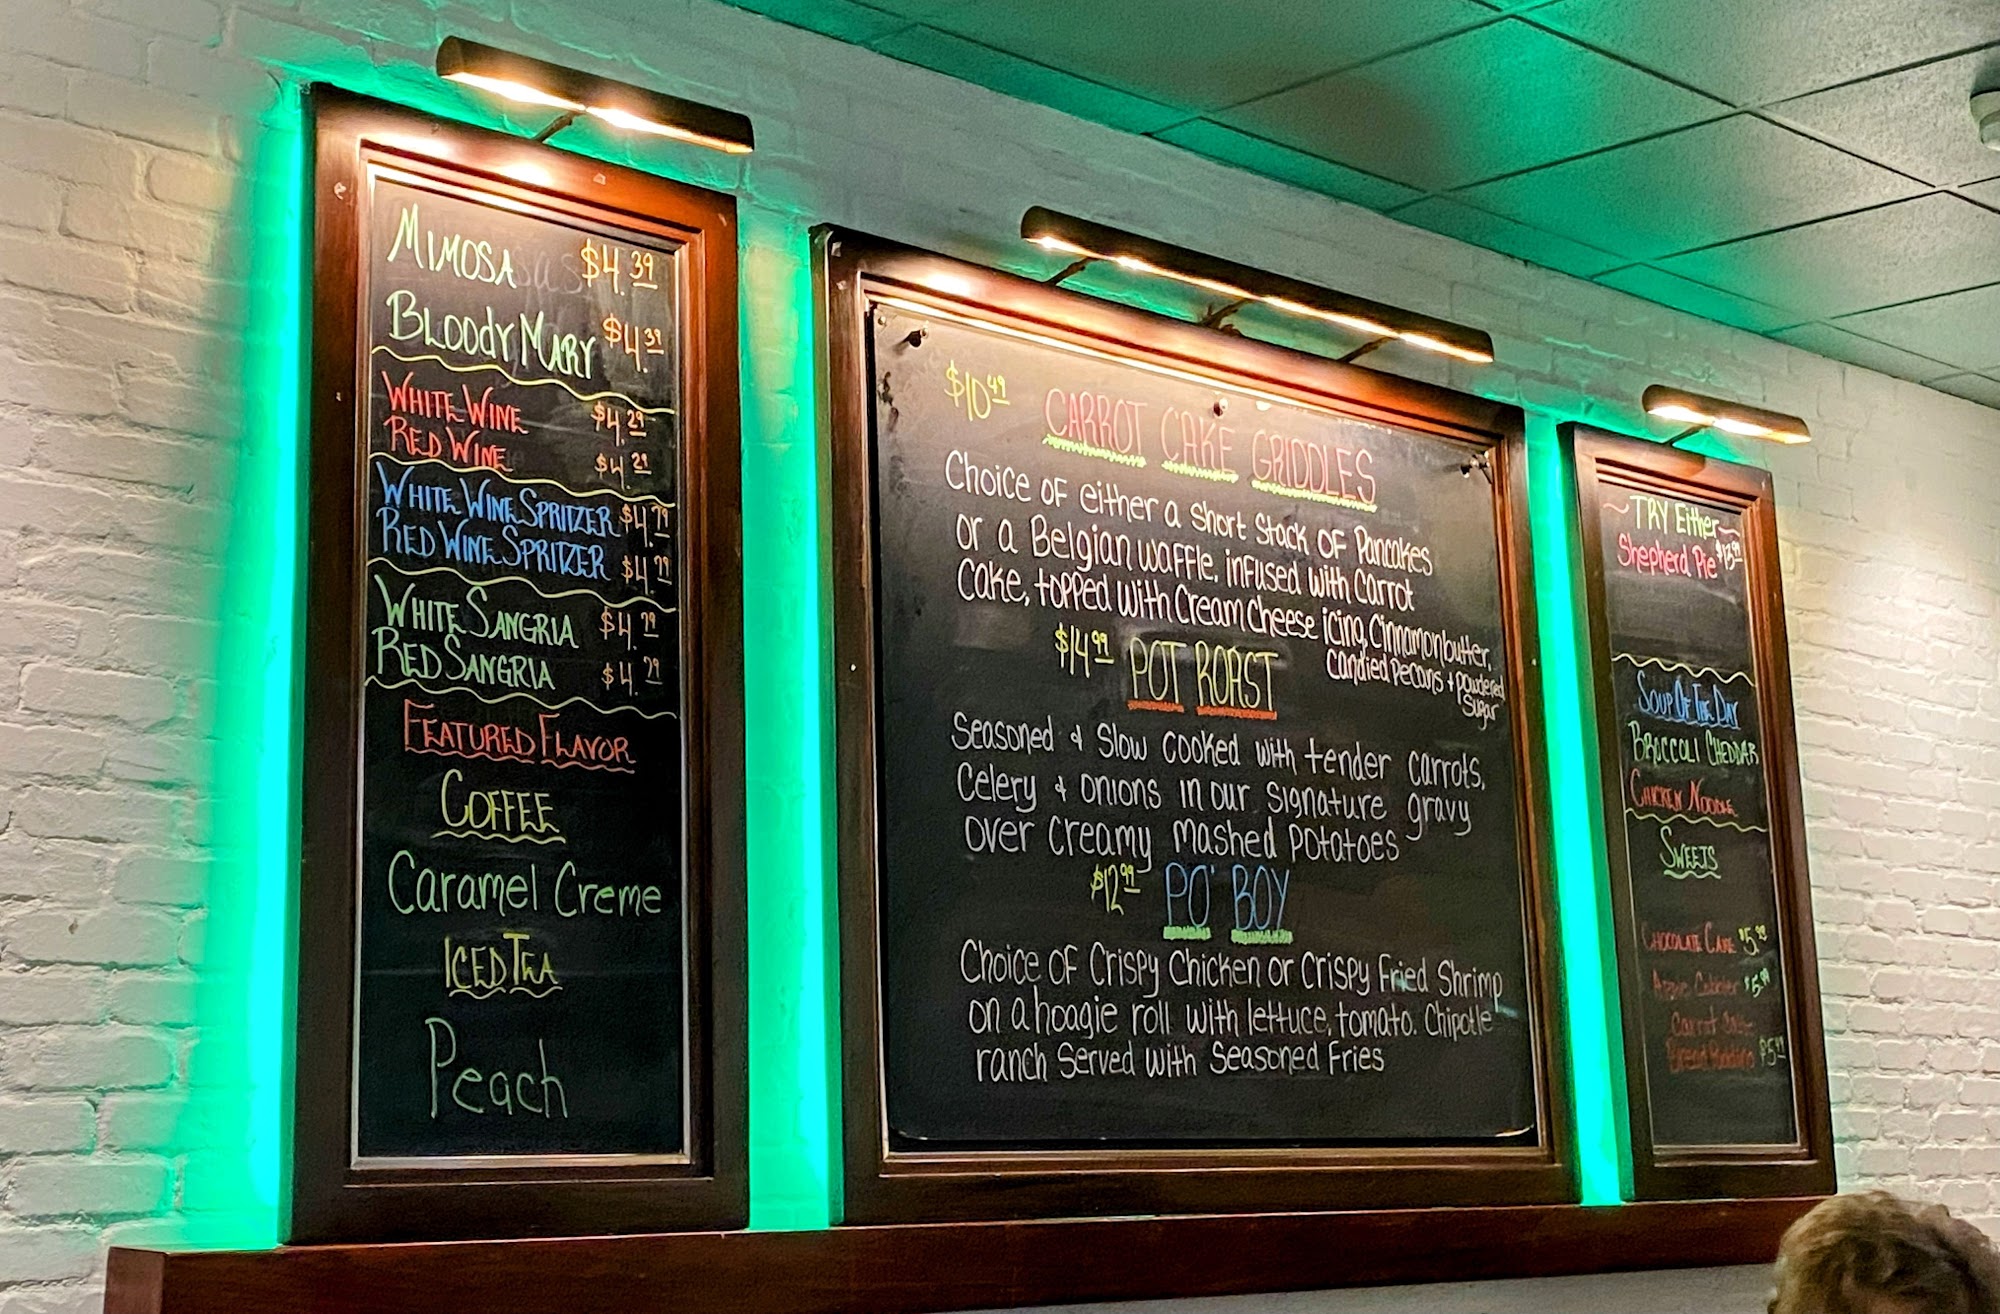 MIMOSA $4.39
BLOODY MARY $4.39
WHITE WINE $4.29
RED WINE $4.29
WHITE WINE SPRITZER $4.79
RED WINE SPRITZER $4.79
WHITE SANGRIA $4.79
RED SANGRIA $4.79
FEATURED FLAVOR
COFFEE
Caramel Creme
ICED TEA
Peach
$10.49 CARROT CAKE GRIDDLES
Choice of either a short stack of Pancakes
or a Belgian waffle. infused with Carrot
Cake, topped with Cream Cheese icing, Cinnamon butter,
Candied Pecans + powdered
Sugar
$14.99 POT ROAST
Seasoned & Slow Cooked with tender Carrots,
Celery & Onions in our signature gravy
over Creamy Mashed Potatoes
$12.99 PO' BOY
Choice of Crispy Chicken or Crispy Fried Shrimp
on a hoagie roll with lettuce, tomato. Chipotle
ranch Served with Seasoned Fries
~TRY Either~
Shepherd Pie $13.99
SOUP OF THE DAY
BROCCOLI CHEDDAR
CHICKEN NOODLE
SWEETS
CHOCOLATE CAKE $5.99
Apple Cobbler $5.99
Carrot Cake
Bread Pudding $5.99